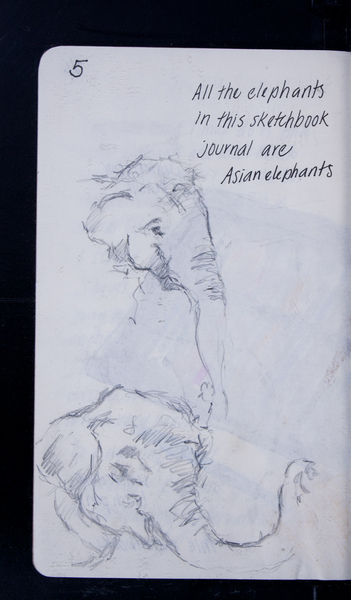 5
All the elephants
in this sketchbook
journal are
Asian elephants